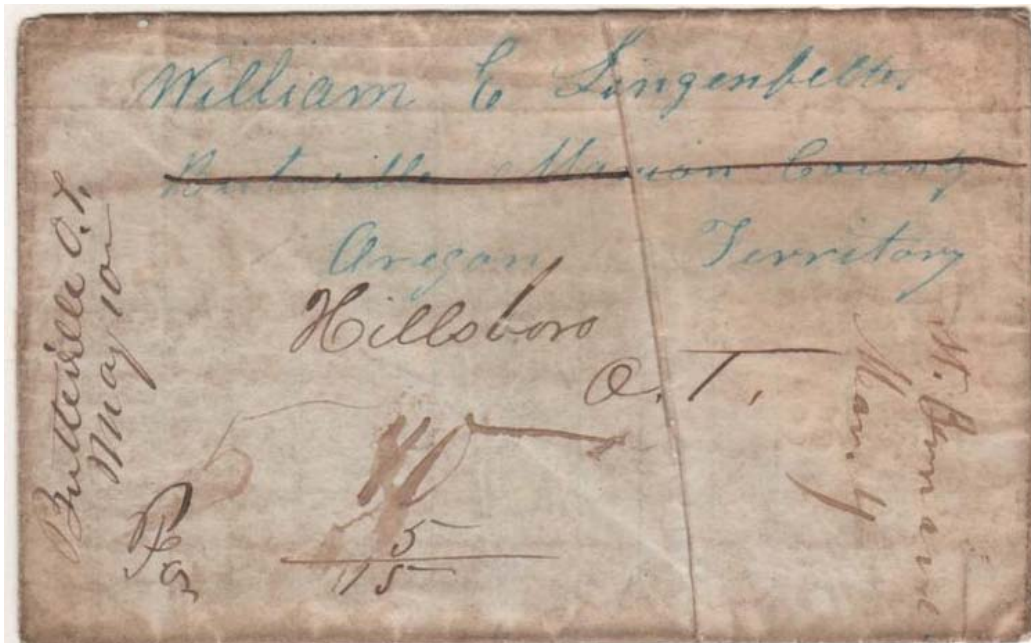 William E Lingenfelter
Buteville Marion County
Oregon Territory
Hillsboro
O. T.
Butteville O.T.
May 10
5
15